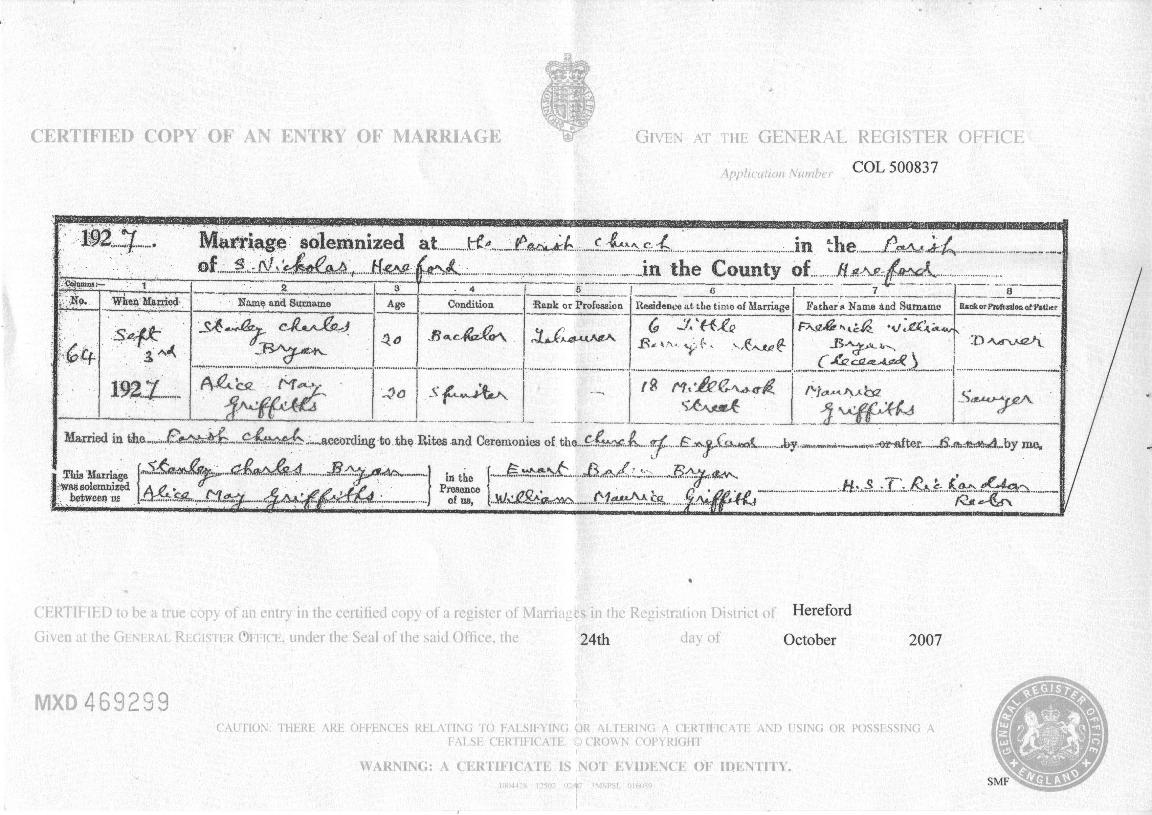 CERTIFIED COPY OF AN ENTRY OF MARRIAGE
GIVEN AT THE GENERAL REGISTER OFFICE
Application Number COL 500837
1927. Marriage solemnized at the Parish Church in the Parish
of S. Nickolas, Hereford in the County of Hereford
Columns:— 1 2 3 4 5 6 7 8
No. When Married Name and Surname Age Condition Rank or Profession Residence at the time of Marriage Father's Name and Surname Rank or Profession of Father
64 Sept 3rd Stanley Charles Bryan 20 Bachelor Labourer 6 Little Street Frederick William Bryan (deceased) Drover
1927 Alice May Griffiths 20 Spinster — 18 Millbrook Street Maurice Griffiths Sawyer
Married in the Parish Church according to the Rites and Ceremonies of the Church of England by or after Banns by me,
This Marriage was solemnized between us Stanley Charles Bryan Alice May Griffiths in the Presence of us, Ewart Bryan William Maurice Griffiths H. S. T. Richardson Rector
CERTIFIED to be a true copy of an entry in the certified copy of a register of Marriages in the Registration District of Hereford
Given at the GENERAL REGISTER OFFICE, under the Seal of the said Office, the 24th day of October 2007
MXD 469299
CAUTION: THERE ARE OFFENCES RELATING TO FALSIFYING OR ALTERING A CERTIFICATE AND USING OR POSSESSING A
FALSE CERTIFICATE. © CROWN COPYRIGHT
WARNING: A CERTIFICATE IS NOT EVIDENCE OF IDENTITY.
GENERAL REGISTER OFFICE
ENGLAND
SMF